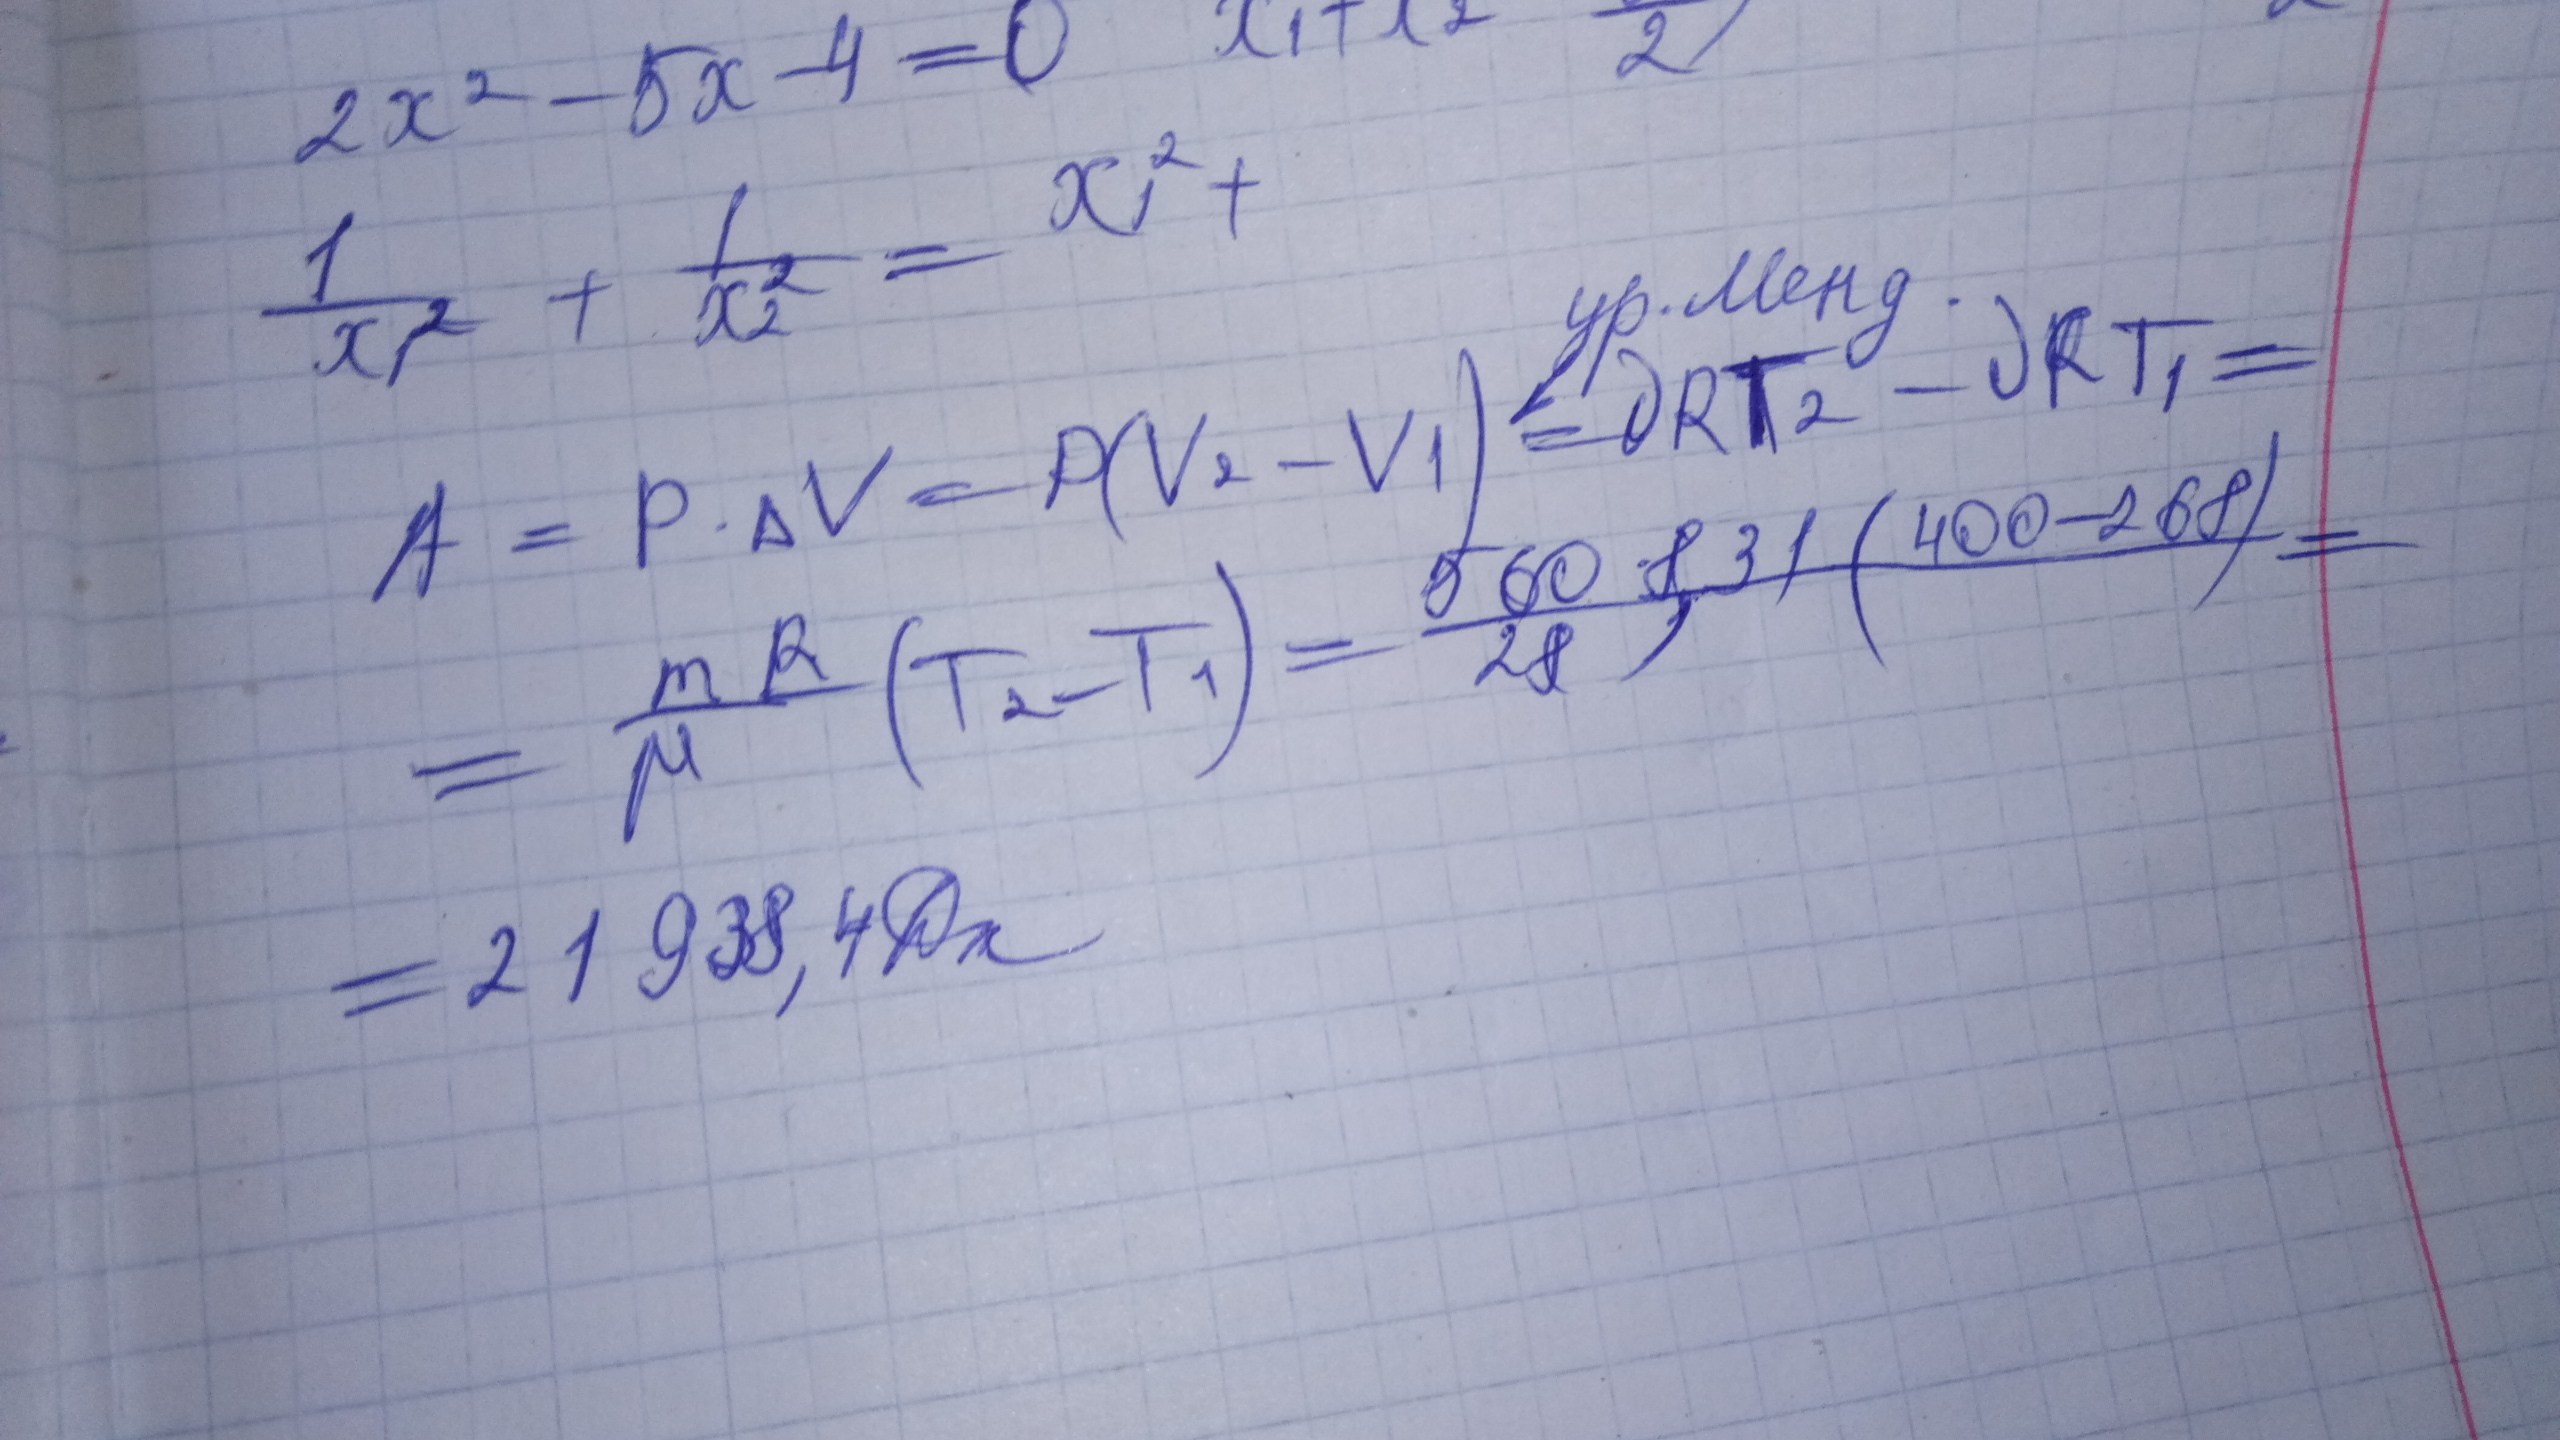 2x² - 5x - 4 = 0   x₁ + x₂   2
1/x₁² + 1/x₂² = x₁² +
ур. Менд.
A = P · ΔV = P(V₂ - V₁) = νRT₂ - νRT₁ =
= mR/μ (T₂ - T₁) = 560 · 8,31 (400 - 268)/28 =
= 21938,4 Дж